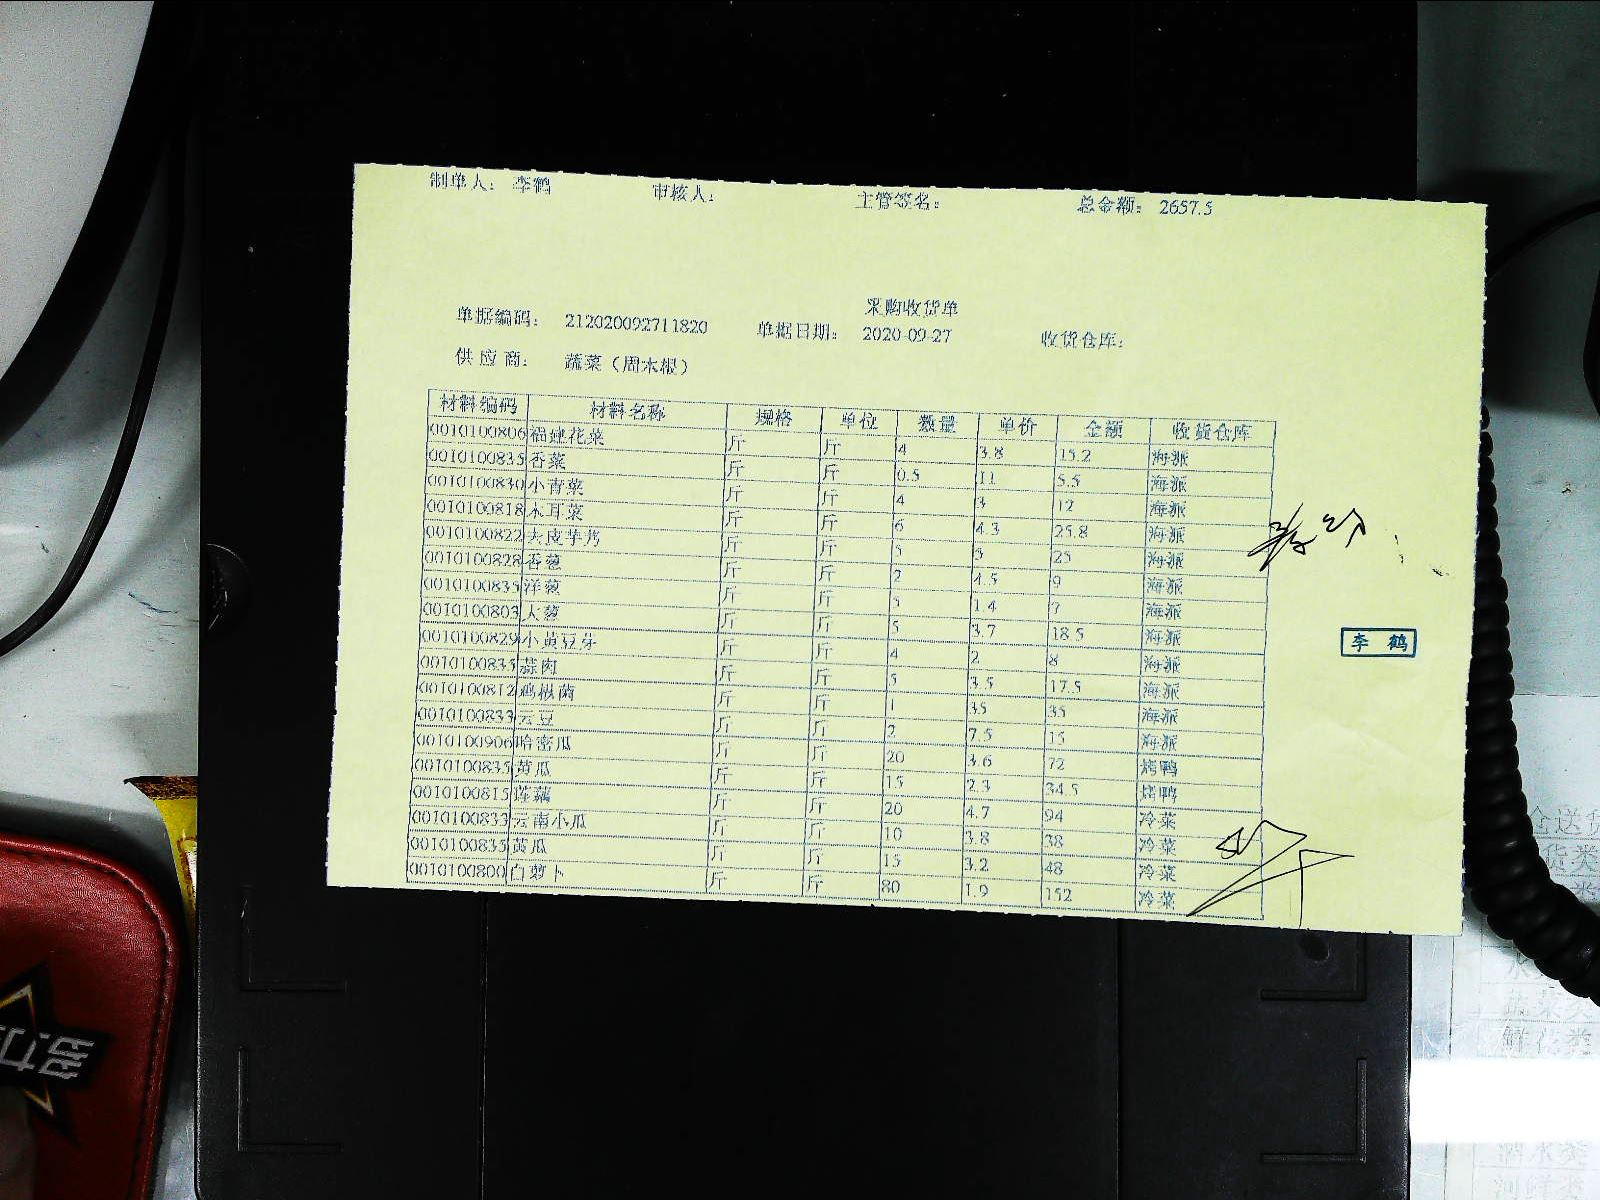 制单人： 李鹤 审核人： 主管签名： 总金额： 2657.5
采购收货单
单据编码： 212020092711820 单据日期： 2020-09-27 收货仓库：
供 应 商： 蔬菜（周木根）
材料编码 材料名称 规格 单位 数量 单价 金额 收货仓库
0010100806 福建花菜 斤 斤 4 3.8 15.2 海派
0010100835 香菜 斤 斤 0.5 11 5.5 海派
0010100830 小青菜 斤 斤 4 3 12 海派
0010100818 木耳菜 斤 斤 6 4.3 25.8 海派
0010100822 去皮芋艿 斤 斤 5 5 25 海派
0010100828 香葱 斤 斤 2 4.5 9 海派
0010100835 洋葱 斤 斤 5 1.4 7 海派
0010100803 大葱 斤 斤 5 3.7 18.5 海派
0010100829 小黄豆芽 斤 斤 4 2 8 海派
0010100835 蒜肉 斤 斤 5 3.5 17.5 海派
0010100812 鸡枞菌 斤 斤 1 35 35 海派
0010100833 云豆 斤 斤 2 7.5 15 海派
0010100906 哈密瓜 斤 斤 20 3.6 72 烤鸭
0010100835 黄瓜 斤 斤 15 2.3 34.5 烤鸭
0010100815 莲藕 斤 斤 20 4.7 94 冷菜
0010100833 云南小瓜 斤 斤 10 3.8 38 冷菜
0010100835 黄瓜 斤 斤 15 3.2 48 冷菜
0010100800 白萝卜 斤 斤 80 1.9 152 冷菜
李 鹤
蔬菜类
鲜花类
酒水类